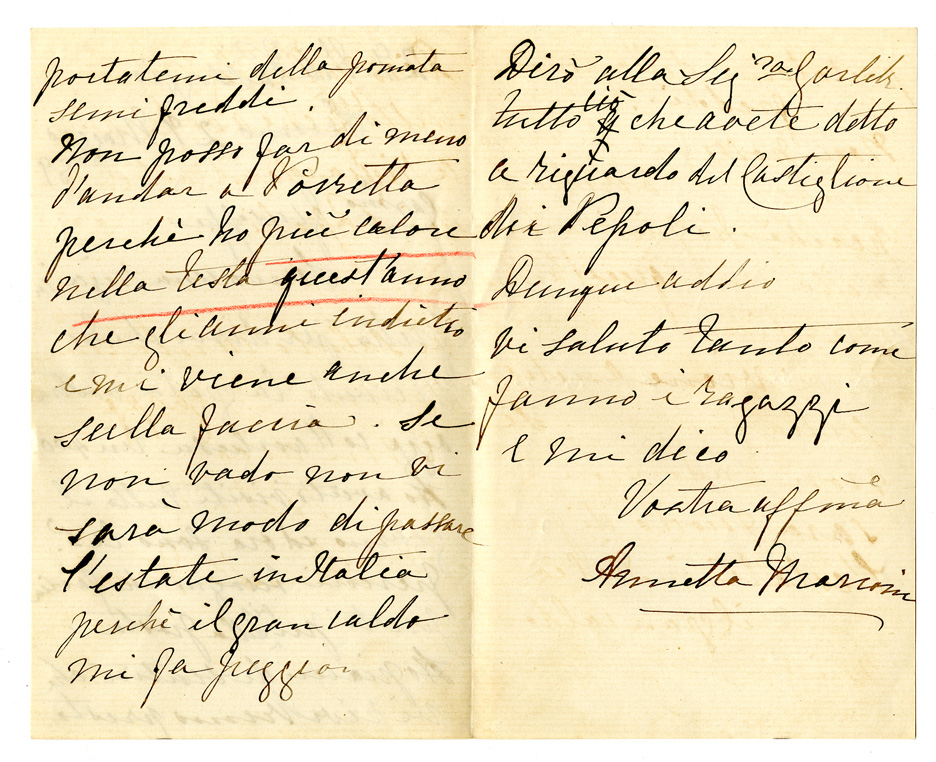 portatemi della pomata
semi freddi.
Non posso far di meno
d'andar a Porretta
perchè ho più calore
nella testa quest'anno
che gli anni indietro
e mi viene anche
sulla faccia. Se
non vado non vi
sarà modo di passare
l'estate in Italia
perchè il gran caldo
mi fa peggior
Dirò alla Sigra Garlik.
tutto ciò che avete detto
a riguardo del Castiglione
dei Pepoli.
Dunque addio
vi saluto tanto come
fanno i ragazzi
e mi dico
Vostra affma
Annetta Marconi